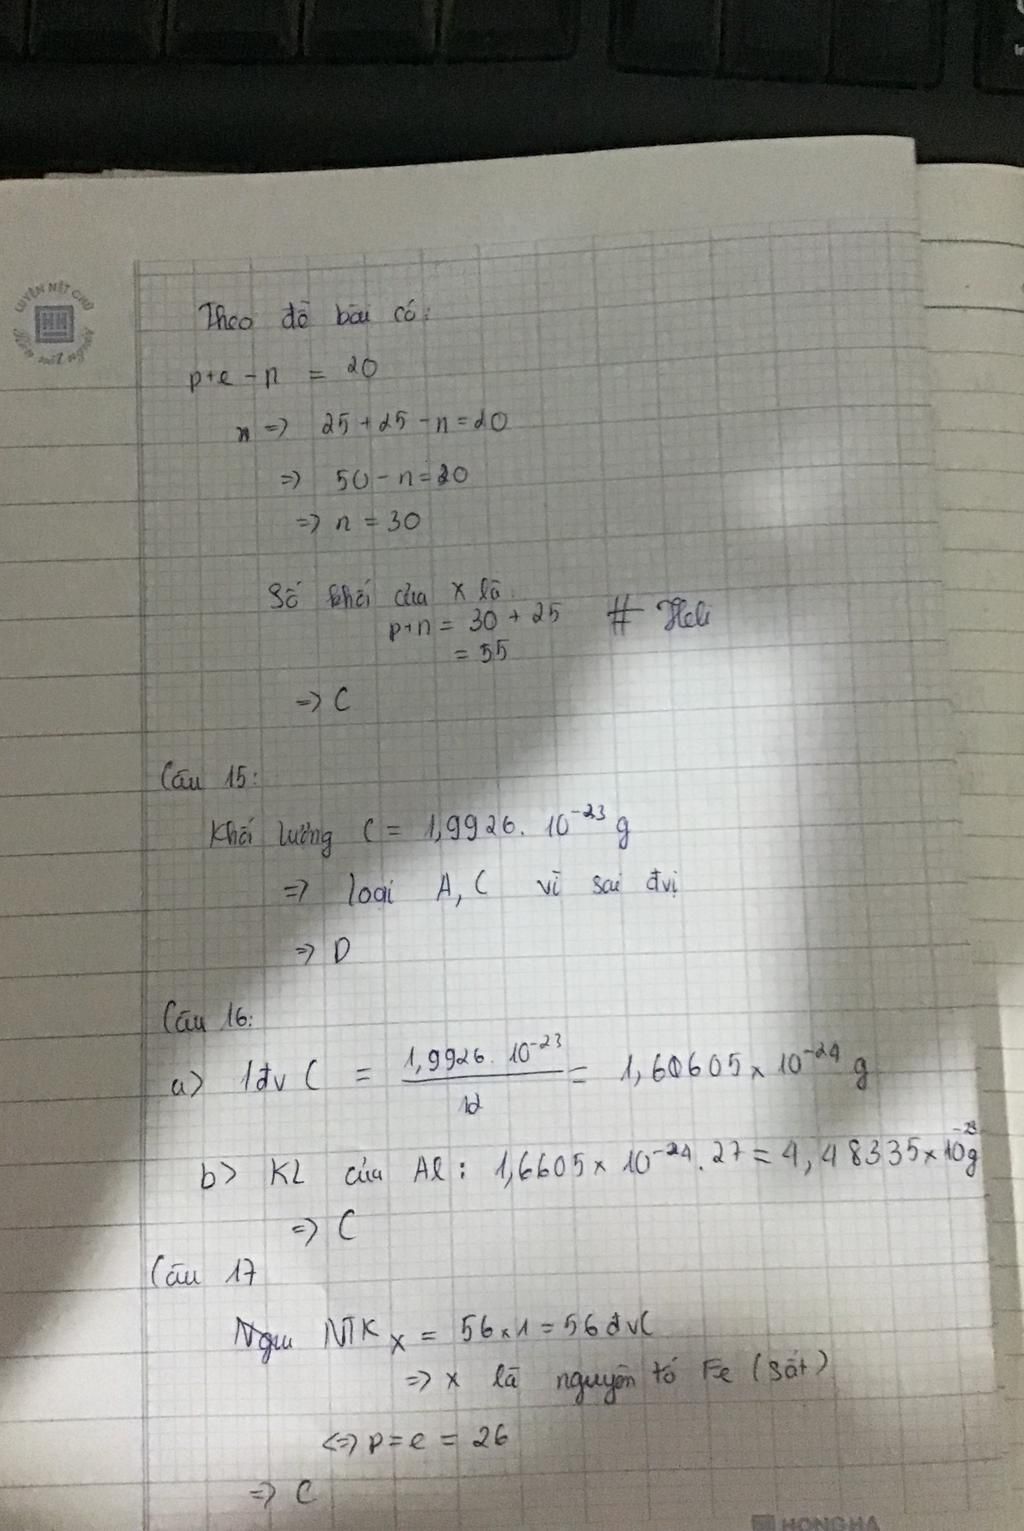 LUYỆN NÉT CHỮ
HH
Rèn nết người
Theo đề bài có:
p+e - n = 20
=> 25 + 25 - n = 20
=> 50 - n = 20
=> n = 30
Số khối của X là
p+n = 30 + 25 # Heli
= 55
=> C
Câu 15:
Khối lường C = 1,9926. 10⁻²³ g
=> loại A, C vì sai đvị
=> D
Câu 16:
a> 1đv C = 1,9926. 10⁻²³ / 12 = 1,60605 x 10⁻²⁴ g
b> KL của Al: 1,6605 x 10⁻²⁴. 27 = 4,48335 x 10⁻²³ g
=> C
Câu 17
NTK X = 56 x 1 = 56 đvC
=> X là nguyên tố Fe (sắt)
<=> p = e = 26
=> C
HONG HA